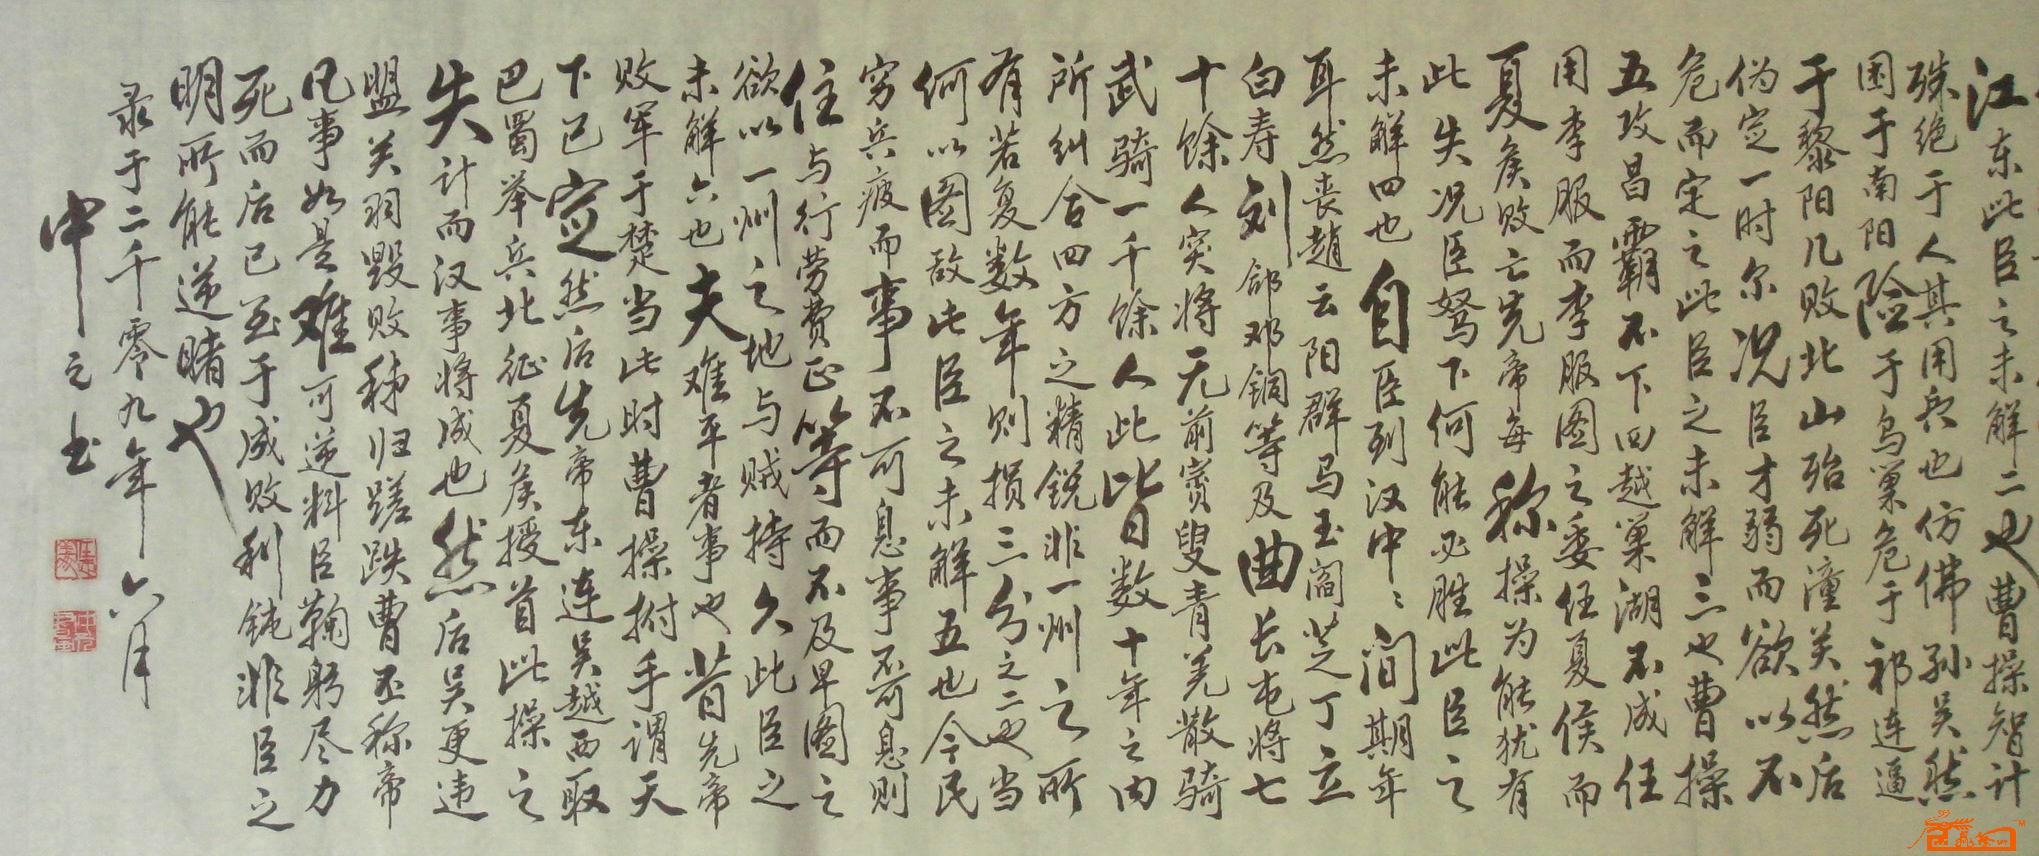 江东此臣之未解二也曹操智计
殊绝于人其用兵也仿佛孙吴然
困于南阳险于乌巢危于祁连逼
于黎阳几败北山殆死潼关然后
伪定一时尔况臣才弱而欲以不
危而定之此臣之未解三也曹操
五攻昌霸不下四越巢湖不成任
用李服而李服图之委任夏侯而
夏侯败亡先帝每称操为能犹有
此失况臣驽下何能必胜此臣之
未解四也自臣到汉中中间期年
耳然丧赵云阳群马玉阎芝丁立
白寿刘郃邓铜等及曲长屯将七
十馀人突将无前賨叟青羌散骑
武骑一千馀人此皆数十年之内
所纠合四方之精锐非一州之所
有若复数年则损三分之二也当
何以图敌此臣之未解五也今民
穷兵疲而事不可息事不可息则
住与行劳费正等而不及早图之
欲以一州之地与贼持久此臣之
未解六也夫难平者事也昔先帝
败军于楚当此时曹操拊手谓天
下已定然后先帝东连吴越西取
巴蜀举兵北征夏侯授首此操之
失计而汉事将成也然后吴更违
盟关羽毁败秭归蹉跌曹丕称帝
凡事如是难可逆料臣鞠躬尽力
死而后已至于成败利钝非臣之
明所能逆睹也
录于二千零九年六月
中之书